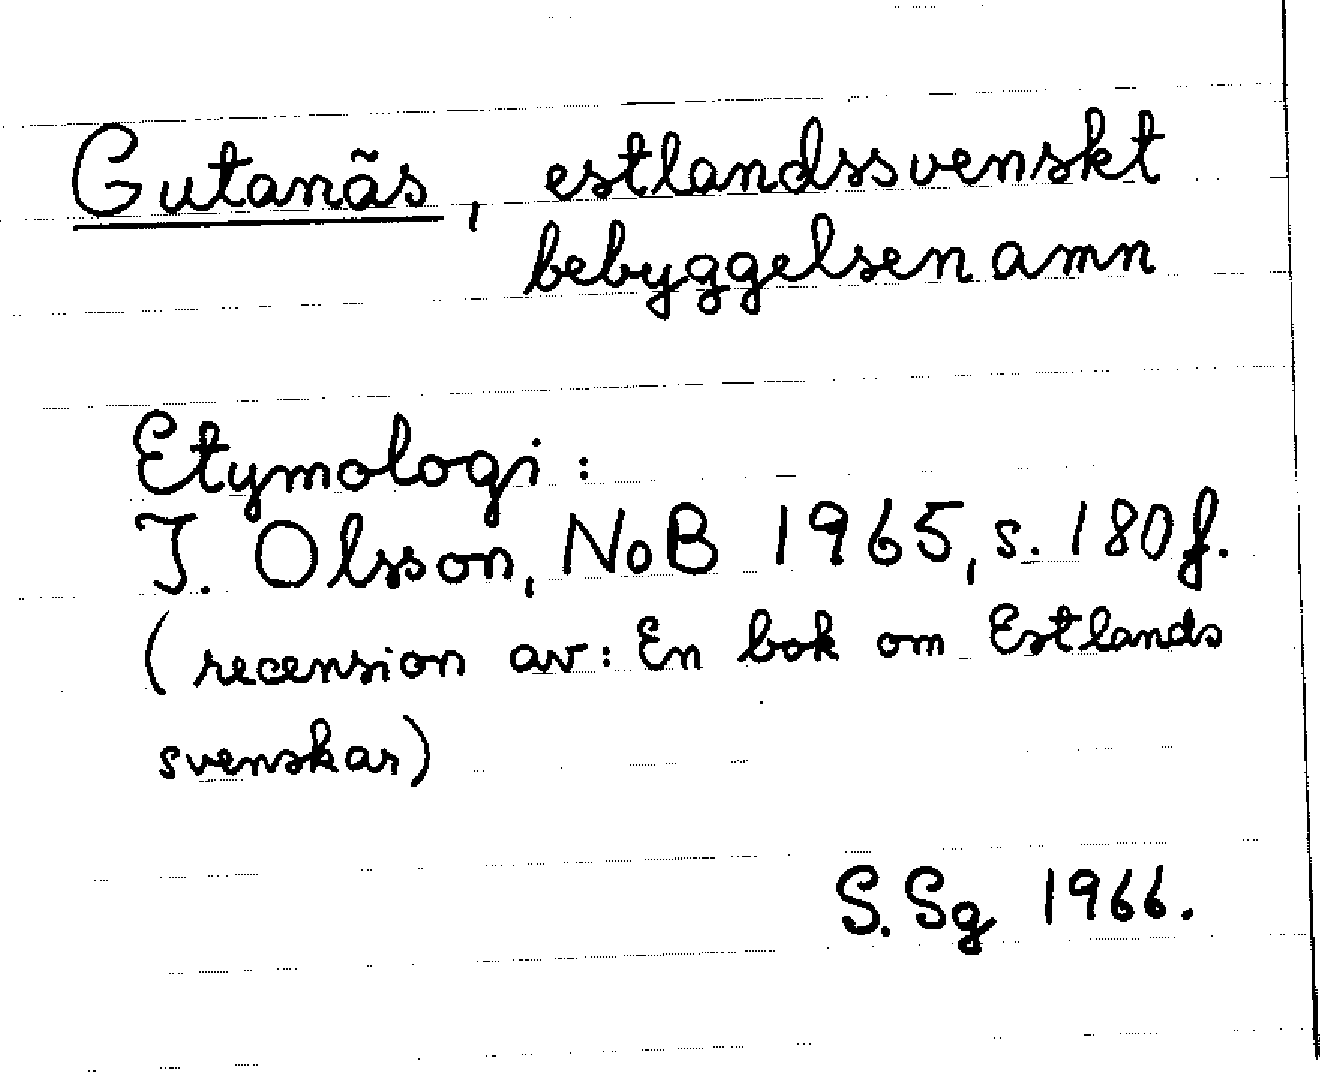 Gutanäs, estlandssvenskt
bebyggelsenamn
Etymologi:
I. Olsson, NoB 1965, s. 180 f.
(recension av: En bok om Estlands
svenskar)
S. Sg 1966.